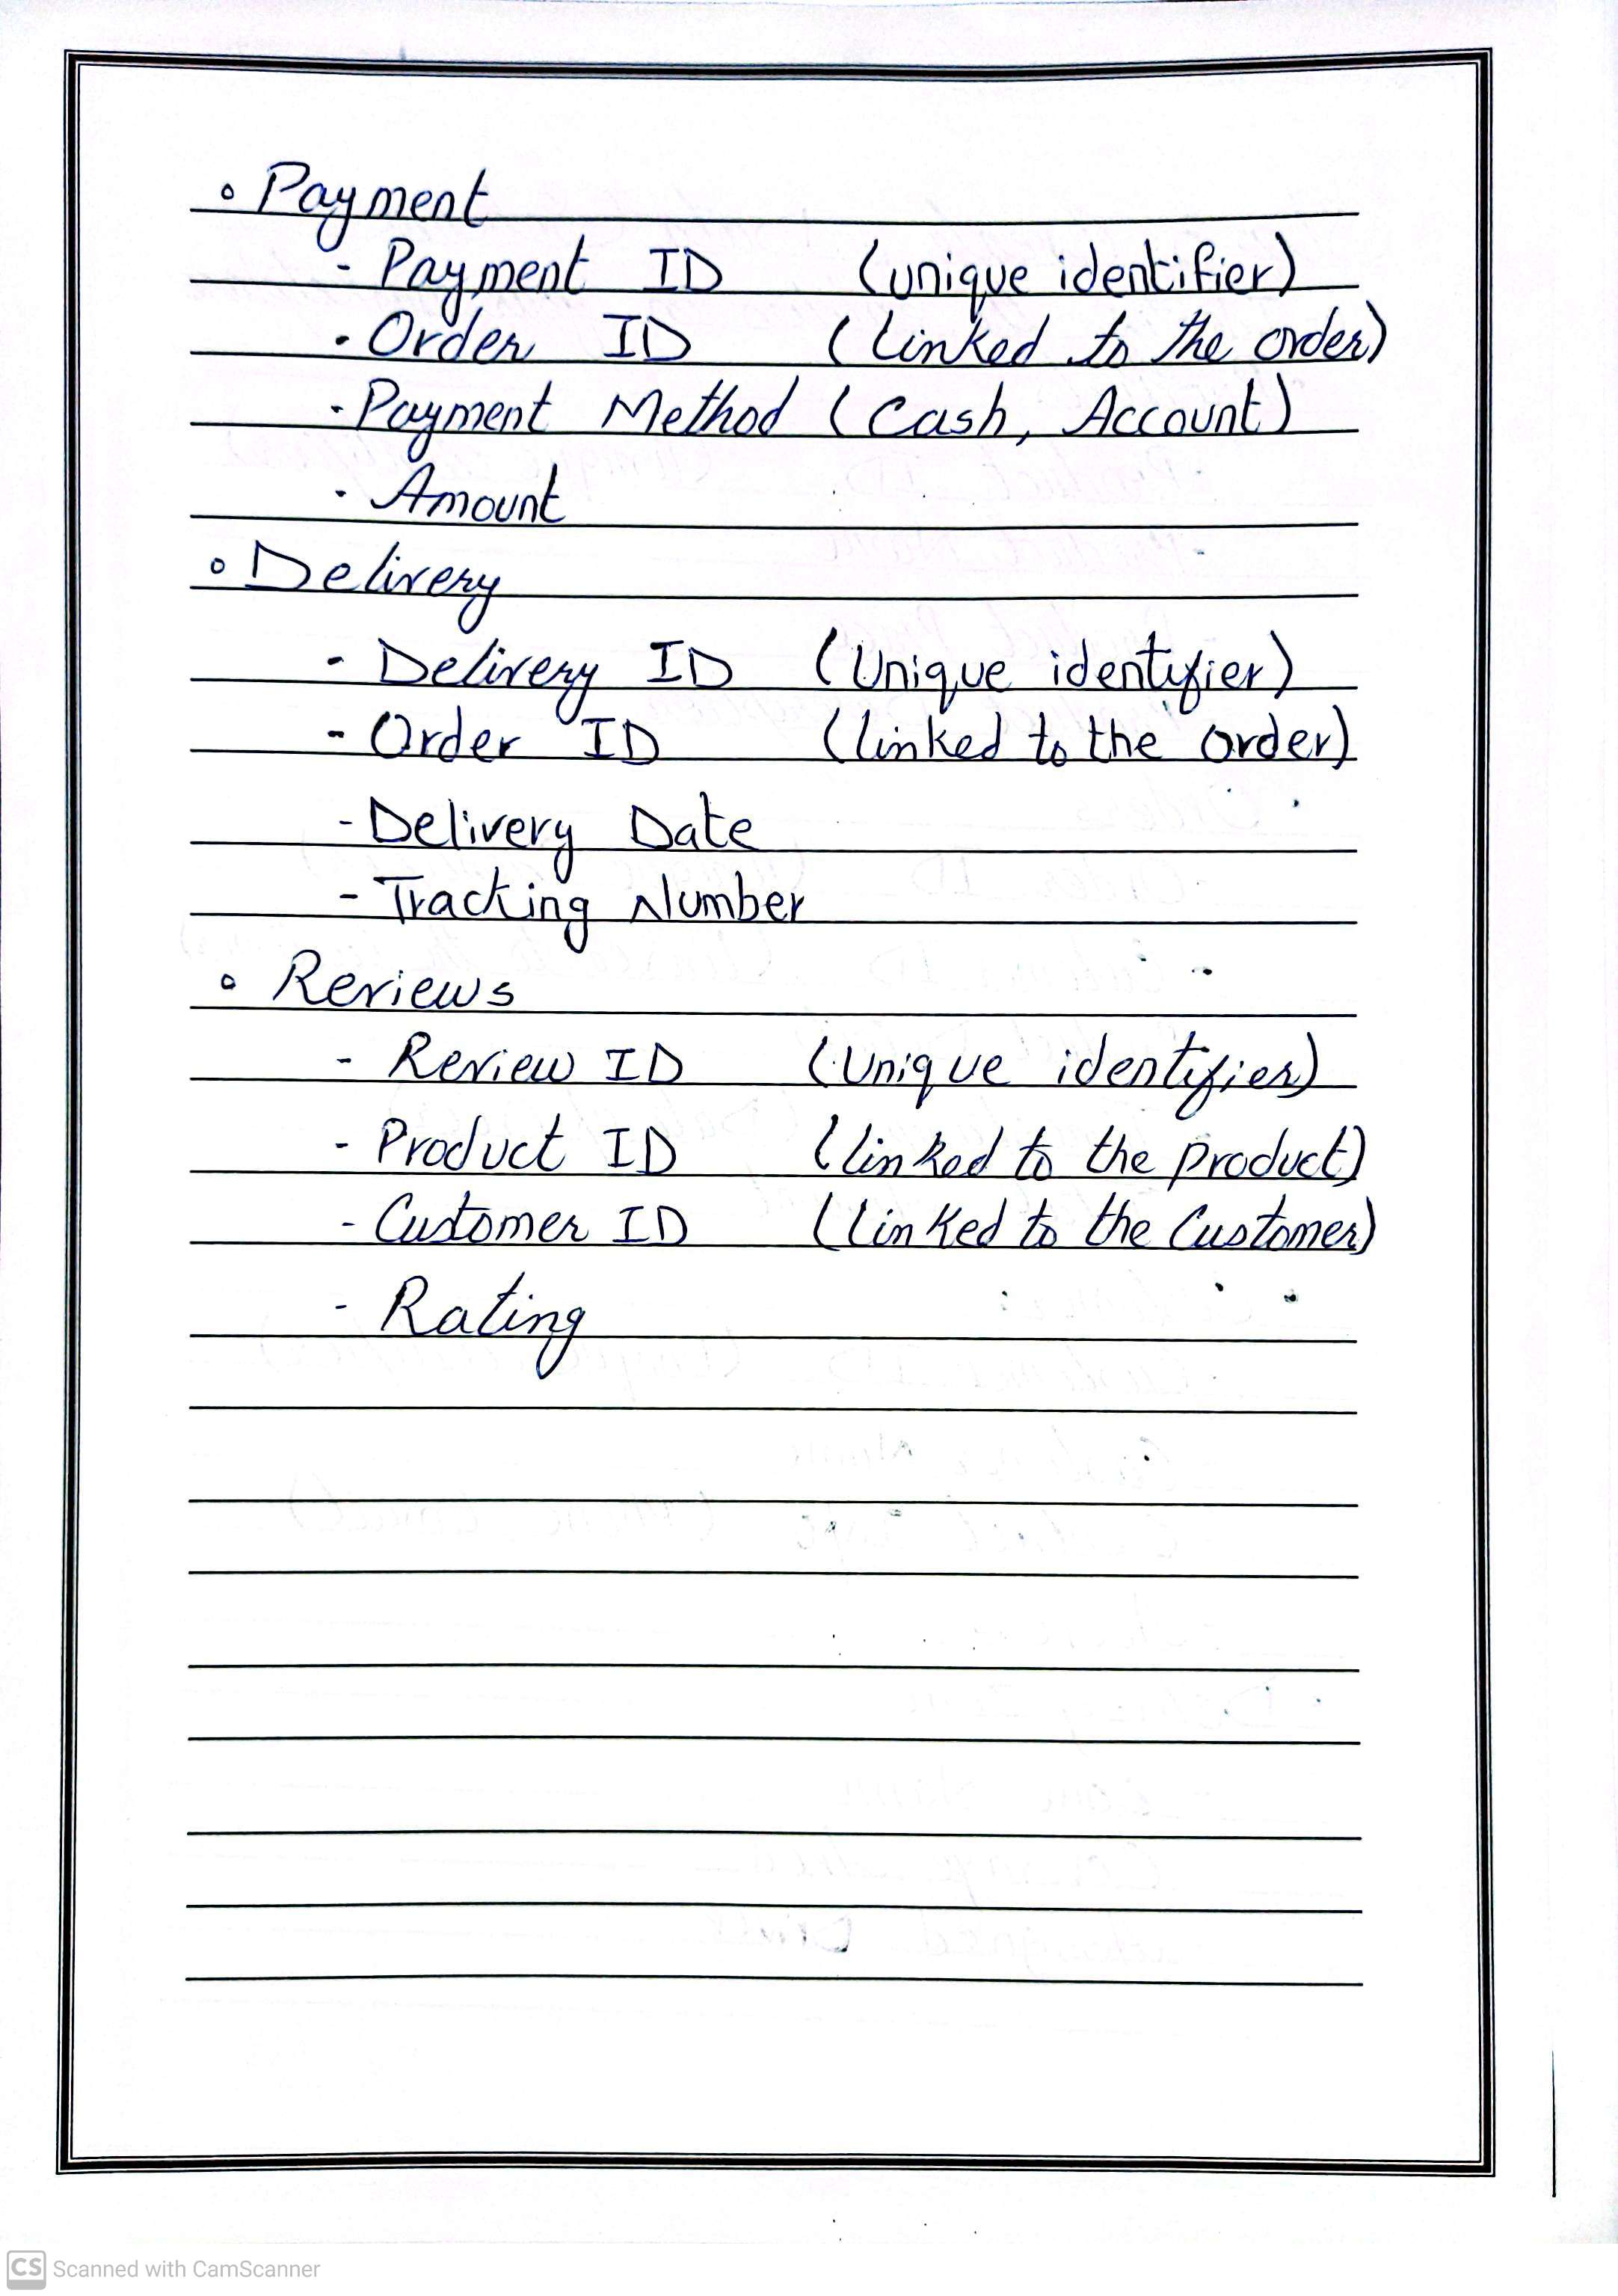 ∘ Payment
- Payment ID (unique identifier)
- Order ID (linked to the order)
- Payment Method (Cash, Account)
- Amount
∘ Delivery
- Delivery ID (Unique identifier)
- Order ID (linked to the order)
- Delivery Date
- Tracking Number
∘ Reviews
- Review ID (Unique identifier)
- Product ID (linked to the product)
- Customer ID (linked to the Customer)
- Rating
CS Scanned with CamScanner